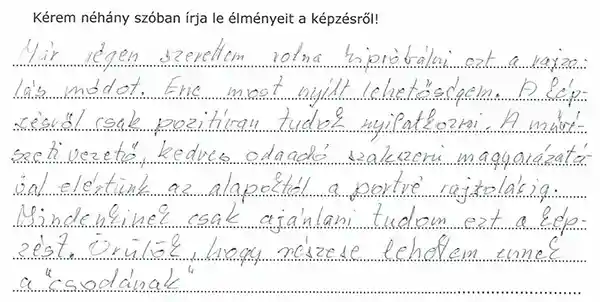 Kérem néhány szóban írja le élményeit a képzésről!
Már régen szerettem volna kipróbálni ezt a rajzo-
lás módot. Erre most nyílt lehetőségem. A kép-
zésről csak pozitívan tudok nyilatkozni. A művé-
szeti vezető, kedves odaadó szakszerű magyarázatá-
val eléртünk az alapoktól a portré rajzolásig.
Mindenkinek csak ajánlani tudom ezt a kép-
zést. Örülök, hogy részese lehettem ennek
a "csodának"